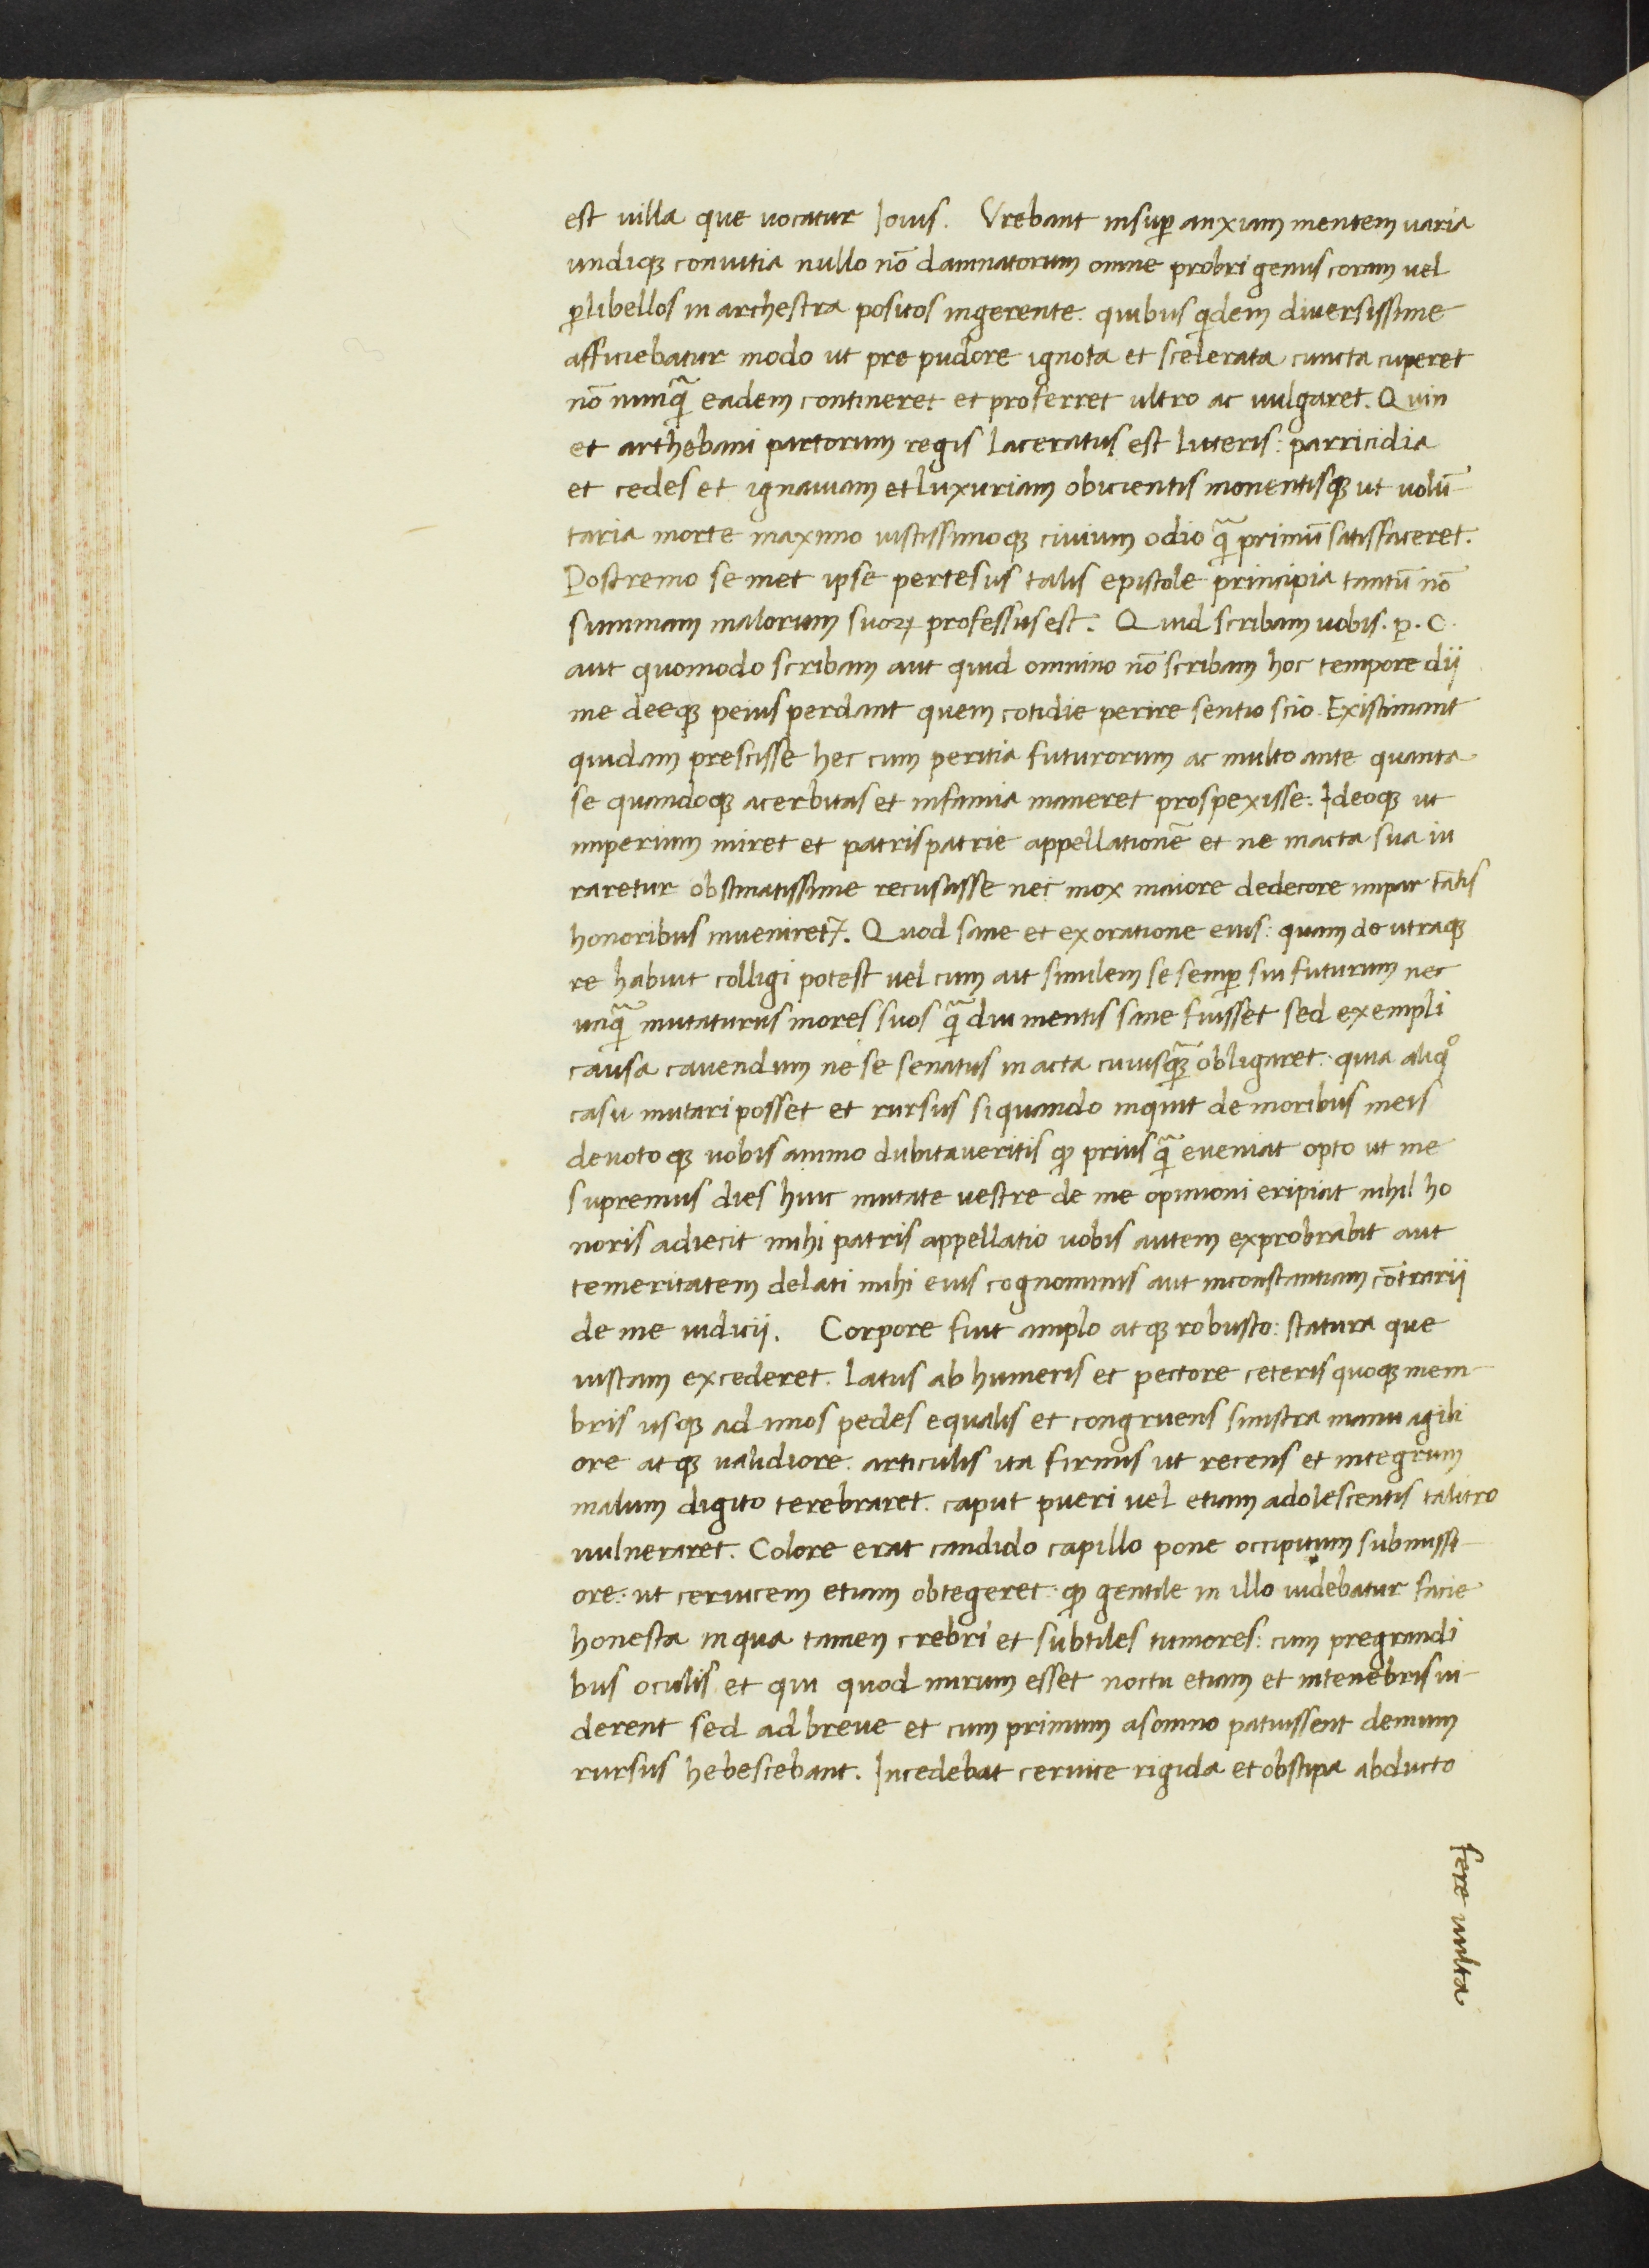 est uilla que uocatur Iouis. Vrebant insuꝑ anxiam mentem uaria
undiqꝫ conuitia nullo nō damnatorum omne probri genus coram uel
ꝑ libellos in archestra positos ingerente. quibus qͥdem diuersissime
afficiebatur modo ut pre pudore ignota et scelerata cuncta cuperet
nō nunqᷓ eadem contineret et proferret ultro ac uulgaret. Quin
et arthebani partorum regis laceratus est litteris: parricidia
et cedes et ignauiam et luxuriam obicientis monentisqꝫ ut uolū
taria morte maximo iustissimoqꝫ ciuium odio qᷓ primū satisfaceret.
Postremo semet ipse pertesus talis epistole principia tantū nō
summam malorum suoꝝ professus est. Quid scribam uobis. p. c.
aut quomodo scribam aut quid omnino nō scribam hoc tempore dii
me deeqꝫ peius perdant quem cotidie perire sentio scio. Existimant
quidam prescisse hec eum peritia futurorum ac multo ante quanta
se quandoqꝫ acerbitas et infamia maneret prospexisse. Ideoqꝫ ut
imperium iniret et patris patrie appellationē et ne in acta sua iu
raretur obstinatissime recusasse nec mox maiore dedecore impar tātis
honoribus inueniretꝛ. Quod sane et ex oratione eius: quam de utraqꝫ
re habuit colligi potest uel cum ait similem se semꝑ sui futurum nec
unqᷓ mutaturus mores suos qᷓ diu mentis sane fuisset sed exempli
causa cauendum ne se senatus in acta cuiusqᷓꝫ obligaret: quia aliqͦ
casu mutari posset et rursus si quando inquit de moribus meis
deuotoqꝫ uobis animo dubitaueritis ꝙ prius qᷓ eueniat opto ut me
supremus dies huic mutate uestre de me opinioni eripiat nihil ho
noris adiecit mihi patris appellatio uobis autem exprobrabit aut
temeritatem delati mihi eius cognominis aut inconstantiam cōtrarii
de me iudicii. Corpore fuit amplo atqꝫ robusto: statura que
iustam excederet. latus ab humeris et pectore ceteris quoqꝫ mem-
bris usqꝫ ad imos pedes equalis et congruens sinistra manu agili
ore atqꝫ ualidiore. articulis ita firmis ut recens et integrum
malum digito terebraret. caput pueri uel etiam adolescentis talitro
uulneraret. Colore erat candido capillo pone occipitium submissi-
ore: ut ceruicem etiam obtegeret: ꝙ gentile in illo uidebatur facie
honesta in qua tamen crebri et subtiles tumores: cum pregrandi
bus oculis et qui quod mirum esset noctu etiam et in tenebris ui-
derent sed ad breue et cum primum a somno patuissent demum
rursus hebescebant. Incedebat ceruice rigida et obstipa abducto
fere uulta